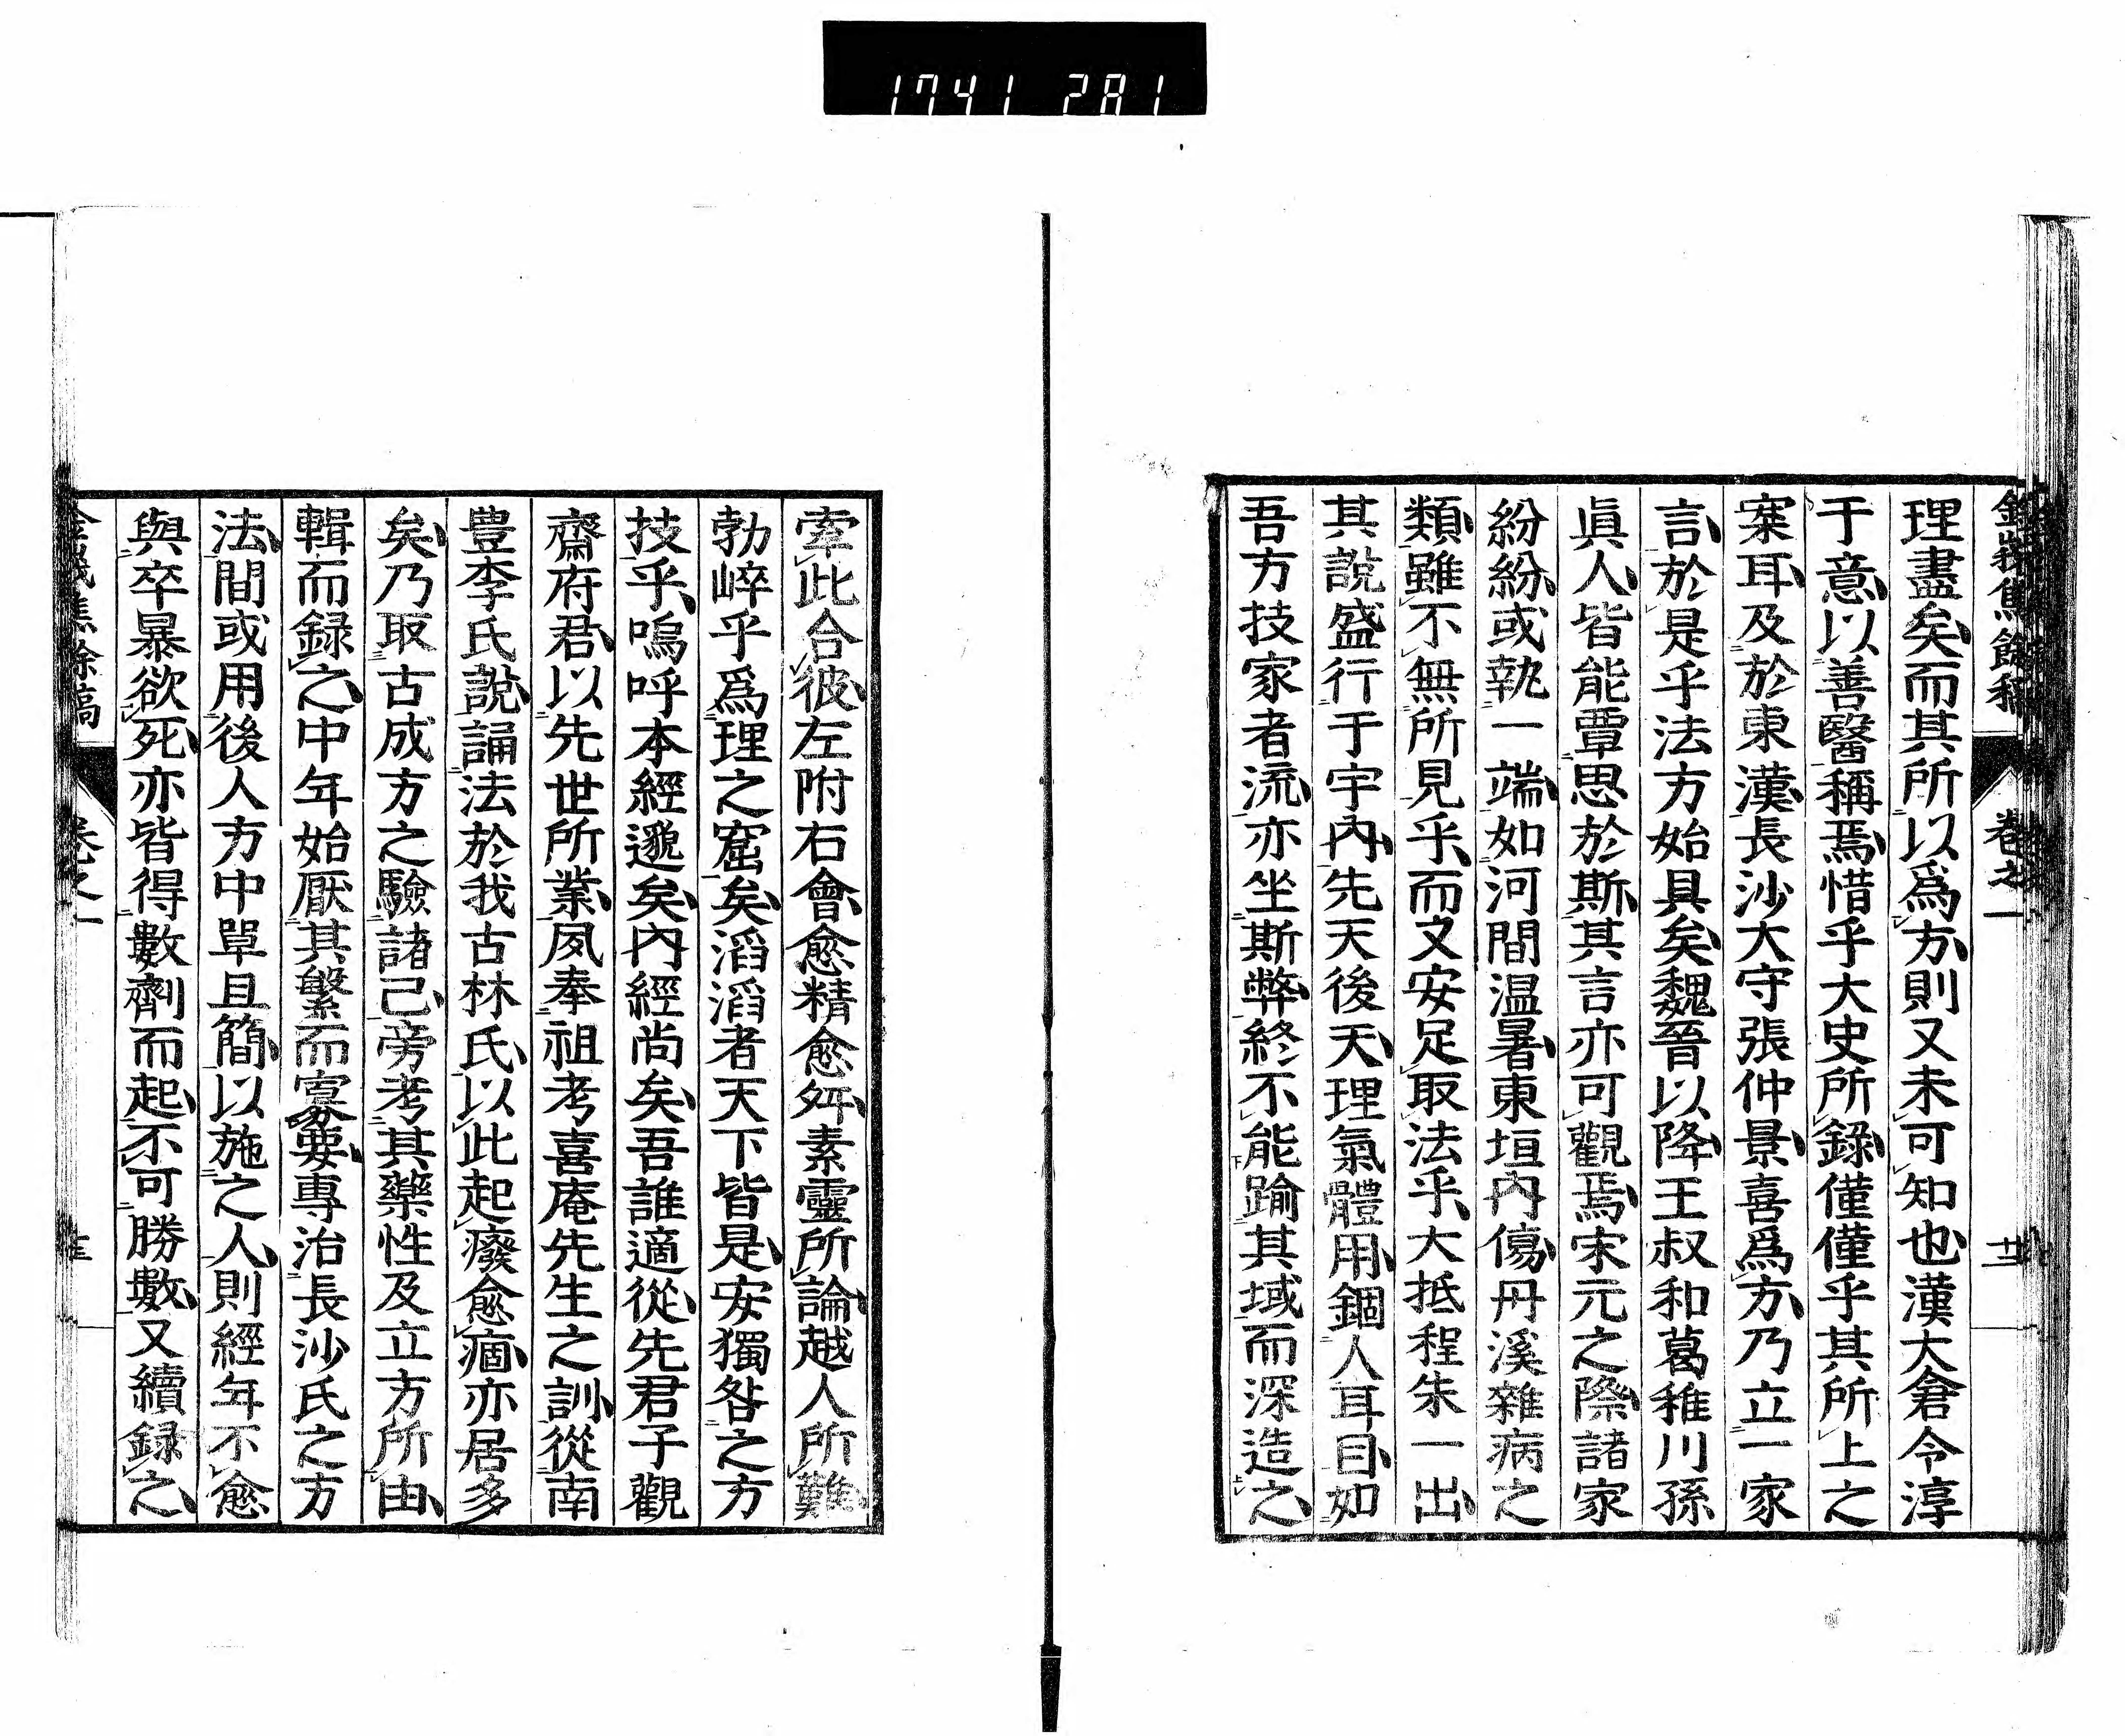 1741 281
理盡矣而其所以爲方則又未可知也漢大倉令淳
于意以善醫稱焉惜乎大史所錄僅僅乎其所上之
案耳及於東漢長沙大守張仲景喜爲方乃立一家
言於是乎法方始具矣魏晉以降王叔和葛稚川孫
眞人皆能覃思於斯其言亦可觀焉宋元之際諸家
紛紛或執一端如河間温暑東垣內傷丹溪雜病之
類雖不無所見乎而又安足取法乎大抵程朱一出
其說盛行于宇內先天後天理氣體用錮人耳目如
吾方技家者流亦坐斯弊終不能踰其域而深造之
卷之一
牽此合彼左附右會愈精愈姸素靈所論越人所難
勃崒乎爲理之窟矣滔滔者天下皆是安獨咎之方
技乎嗚呼本經邈矣內經尚矣吾誰適從先君子觀
齋府君以先世所業夙奉祖考喜庵先生之訓從南
豊李氏說誦法於我古林氏以此起癈愈痼亦居多
矣乃取古成方之驗諸己旁考其藥性及立方所由
輯而録之中年始厭其繁而寡要專治長沙氏之方
法間或用後人方中單且簡以施之人則經年不愈
與卒暴欲死亦皆得數劑而起不可勝數又續録之